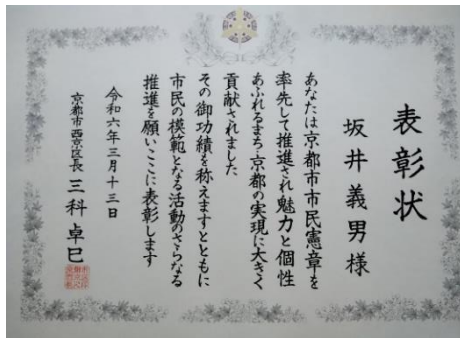 表彰状
坂井義男様
あなたは京都市市民憲章を
率先して推進され魅力と個性
あふれるまち京都の実現に大きく
貢献されました
その御功績を称えますとともに
市民の模範となる活動のさらなる
推進を願いここに表彰します
令和六年三月十三日
京都市西京区長 三科卓巳